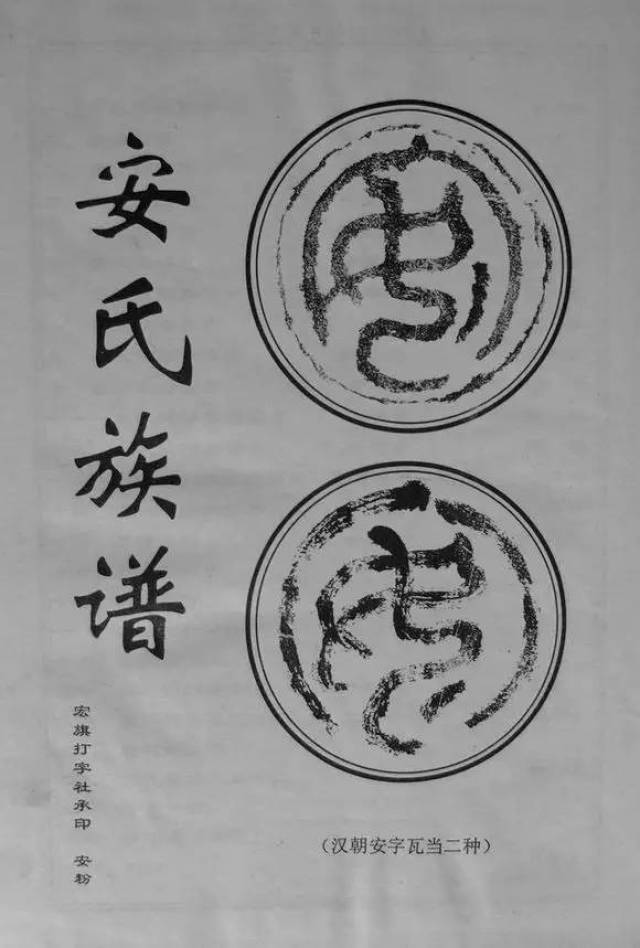 安氏族谱
宏旗打字社承印 安粉
安
安
（汉朝安字瓦当二种）